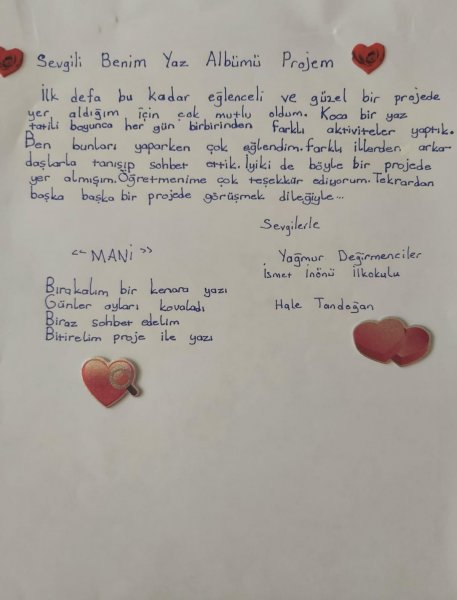 Sevgili Benim Yaz Albümü Projem
İlk defa bu kadar eğlenceli ve güzel bir projede
yer aldığım için çok mutlu oldum. Koca bir yaz
tatili boyunca her gün birbirinden farklı aktiviteler yaptık.
Ben bunları yaparken çok eğlendim. Farklı illerden arka-
daşlarla tanışıp sohbet ettik. İyiki de böyle bir projede
yer almışım. Öğretmenime çok teşekkür ediyorum. Tekrardan
başka başka bir projede görüşmek dileğiyle...
Sevgilerle
Yağmur Değirmenciler
İsmet İnönü İlkokulu
Hale Tandoğan
"MANİ"
Bırakalım bir kenara yazı
Günler ayları kovaladı
Biraz sohbet edelim
Bitirelim proje ile yazı